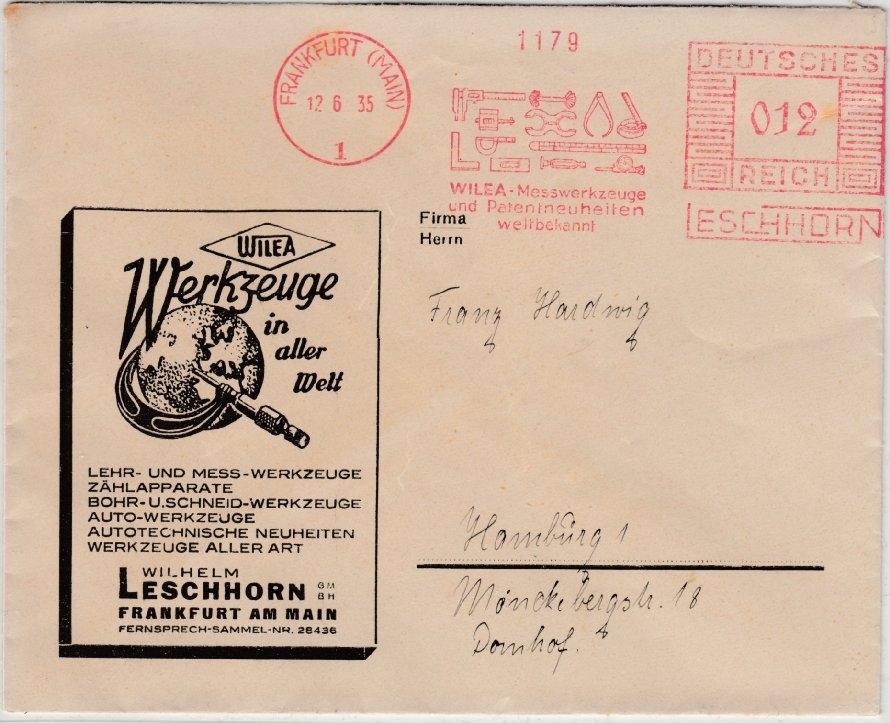 1179
FRANKFURT (MAIN)
12 6 35
1
DEUTSCHES
012
REICH
ESCHHORN
WILEA-Messwerkzeuge
und Patentneuheiten
weltbekannt
Firma
Herrn
Franz Hardwig
Hamburg 1
Mönckebergstr. 18
Domhof.
WILEA
Werkzeuge
in
aller
Welt
LEHR- UND MESS-WERKZEUGE
ZÄHLAPPARATE
BOHR-U.SCHNEID-WERKZEUGE
AUTO-WERKZEUGE
AUTOTECHNISCHE NEUHEITEN
WERKZEUGE ALLER ART
WILHELM
LESCHHORN GM BH
FRANKFURT AM MAIN
FERNSPRECH-SAMMEL-NR. 28436